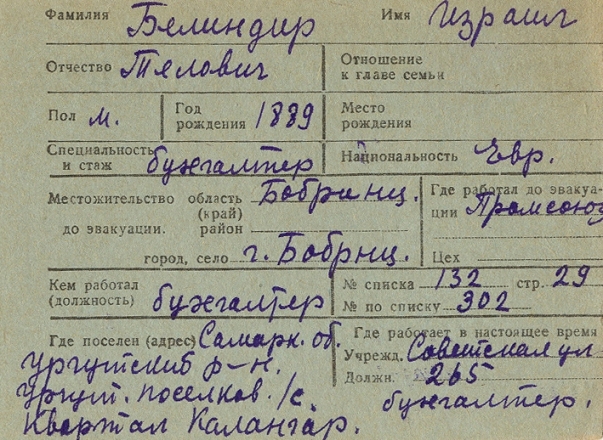 Фамилия Белиндир Имя Израил
Отчество Тялович Отношение к главе семьи
Пол м. Год рождения 1889 Место рождения
Специальность и стаж бухгалтер Национальность Евр.
Местожительство область (край) Бобринц. Где работал до эвакуации Промсоюз
до эвакуации. район
город, село г. Бобрнц. Цех
Кем работал (должность) бухгалтер № списка 132 стр. 29
№ по списку 302
Где поселен (адрес) Самарк. об. Где работает в настоящее время
Ургутский р-н. Учрежд. Советская ул
Ургут. поселков. /с. Должн. 265
Квартал Калангар. бухгалтер.